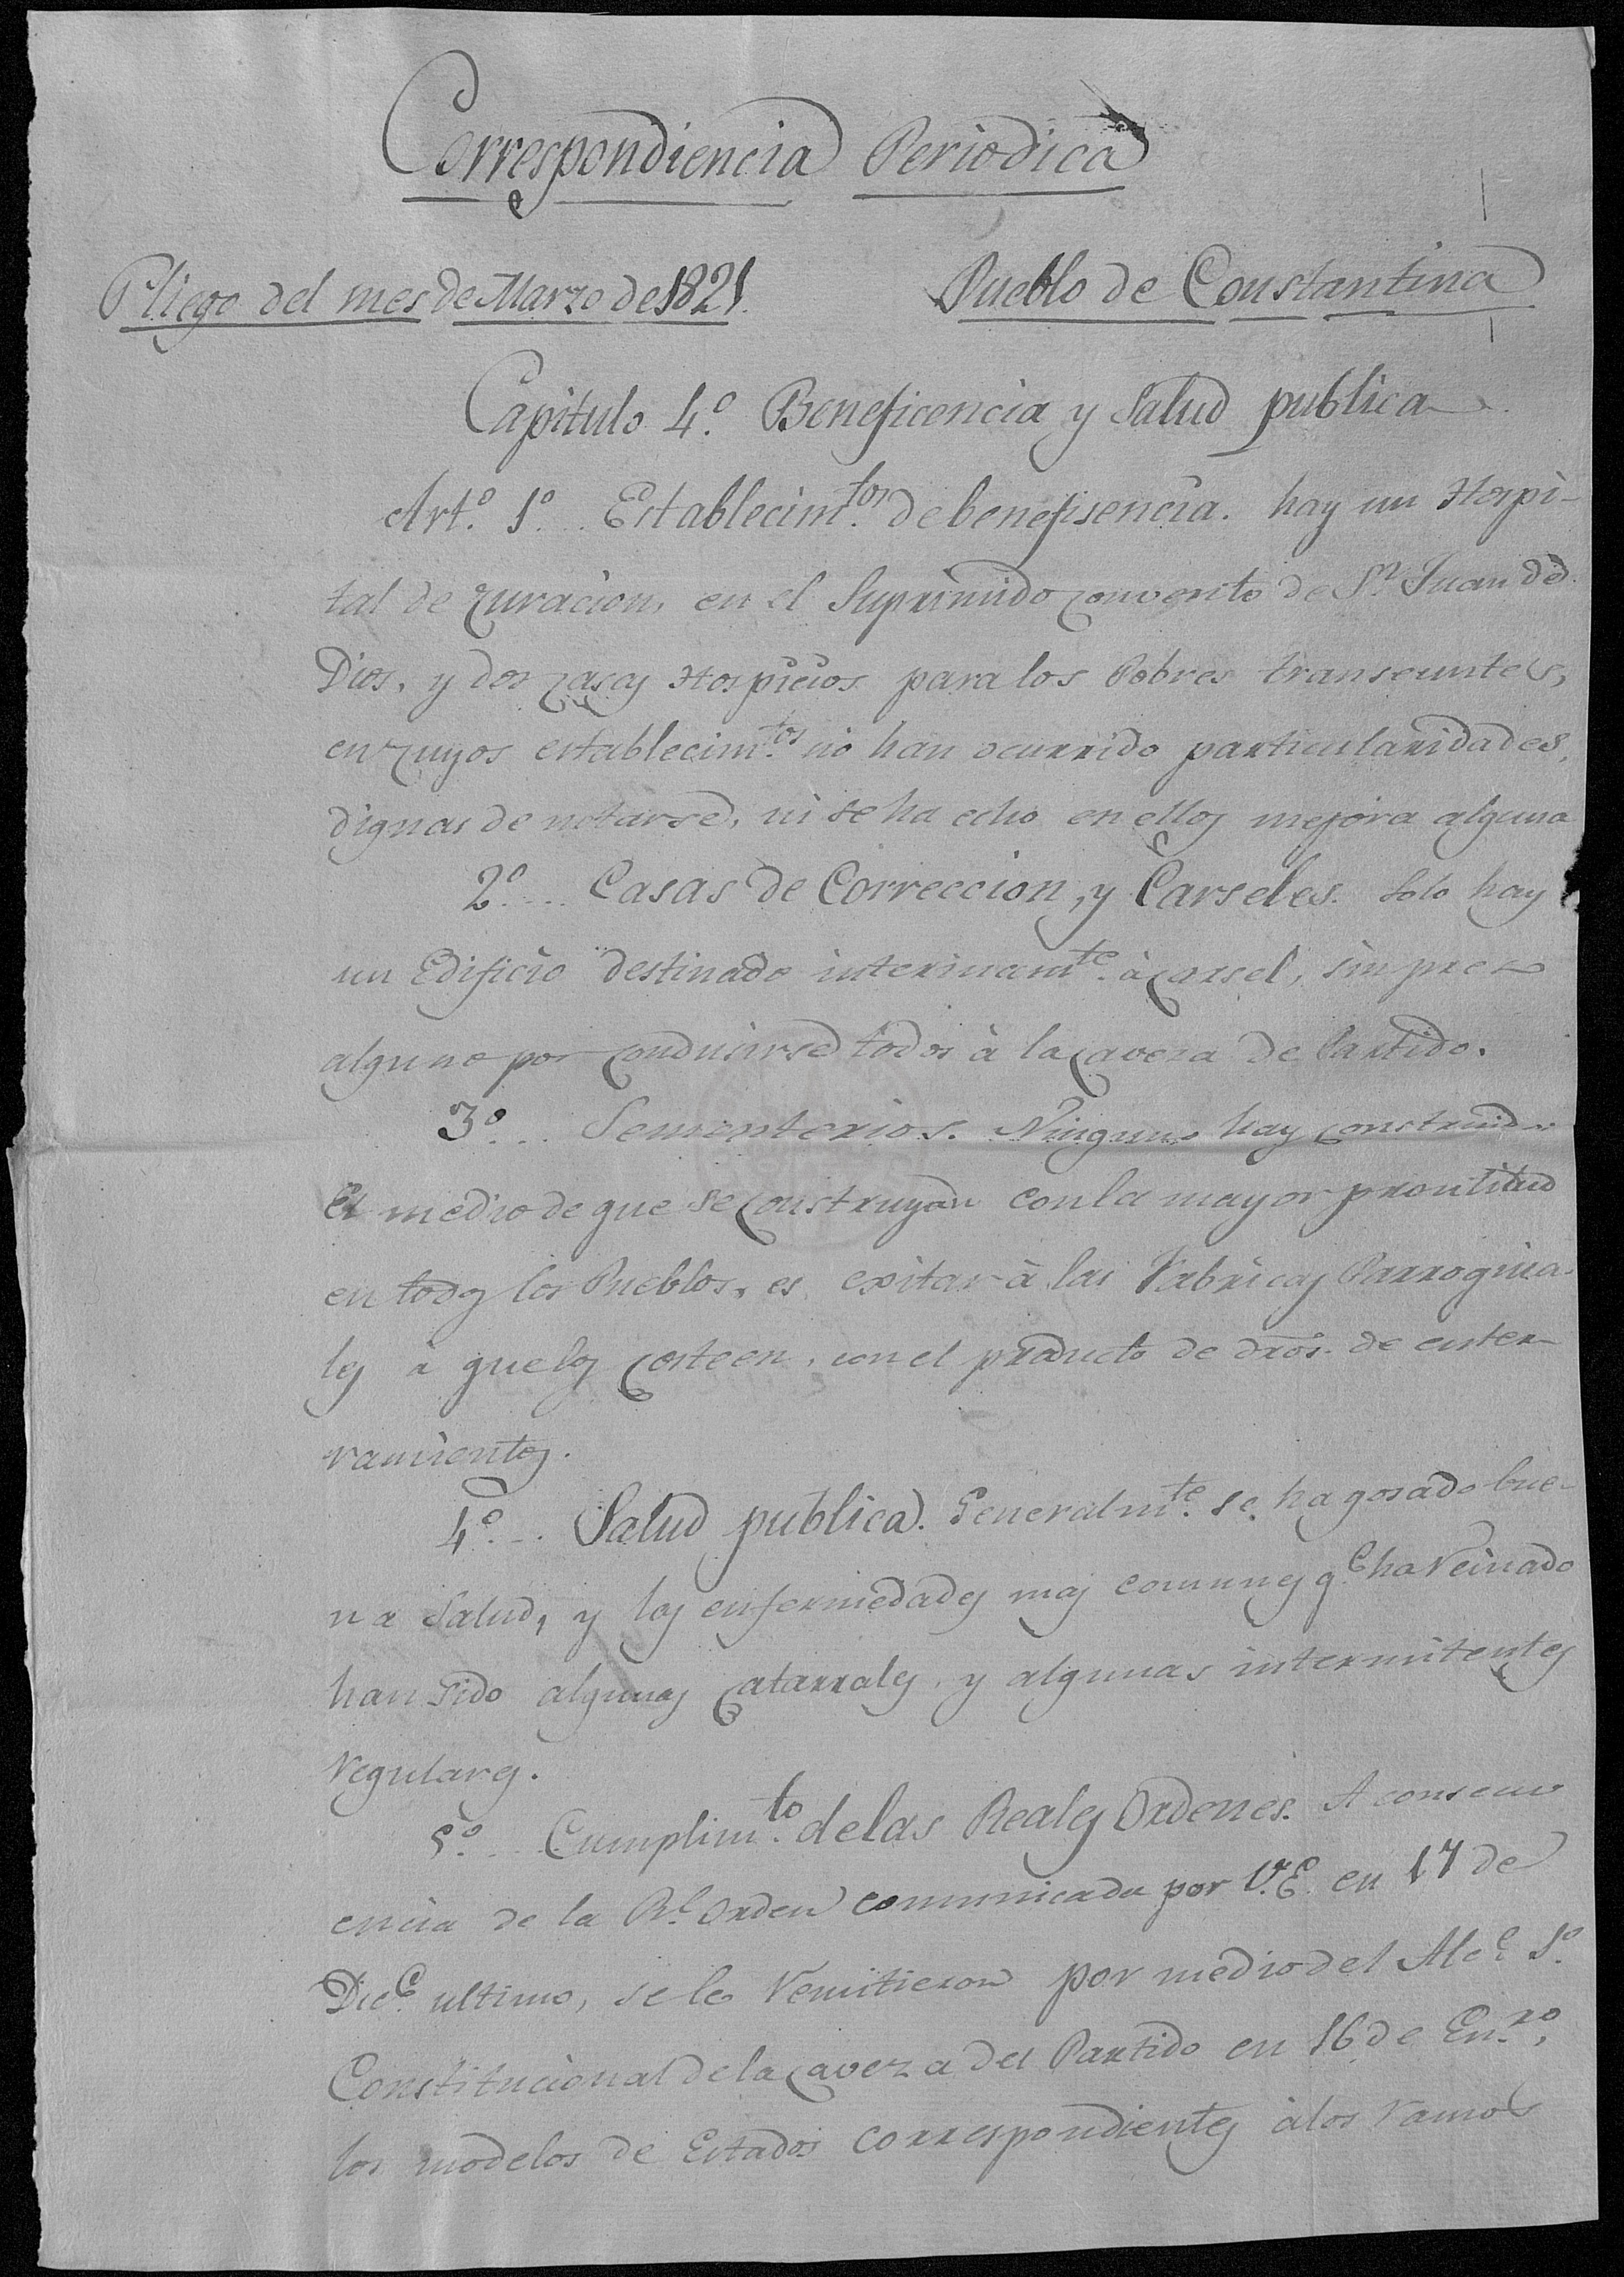 Correspondiencia Periodica
Pliego del mes de Marzo de 1821.
Pueblo de Constantina
Capitulo 4.º Beneficencia y Salud publica
Art.º 1.º Establecim.tos de benefisencia. hay un Hospi-
tal de curacion, en el Suprimido convento de S.n Juan de
Dios, y dos casas Hospicios para los Pobres transeuntes,
en cuyos establecim.tos no han ocurrido particularidades,
dignas de notarse, ni se ha echo en ellos mejora alguna
2.º Casas de Correccion, y Carseles. Solo hay
un Edificio destinado interinam.te à carsel, sin pre
alguno por condusirse todos à la cavesa de Partido.
3.º Sementerios. Ninguno hay construido
El medio de que se construyan con la mayor prontitud
en todos los Pueblos, es exitar à las Fabricas Parroquia-
les à que los costeen, con el producto de dros. de enter-
ramientos.
4.º Salud publica. Generalm.te se ha gosado bue-
na Salud, y las enfermedades mas comunes q.e ha reinado
han sido algunas catarrales, y algunas intermitentes
regulares.
5.º Cumplim.to de las Reales Ordenes. A consecu
encia de la R.l Orden comunicada por V.E. en 17 de
Dic.e ultimo, se le remitieron por medio del Alc.e 1.º
Constitucional de la caveza del Partido en 16 de En.ro,
los modelos de Estados correspondientes à los ramos